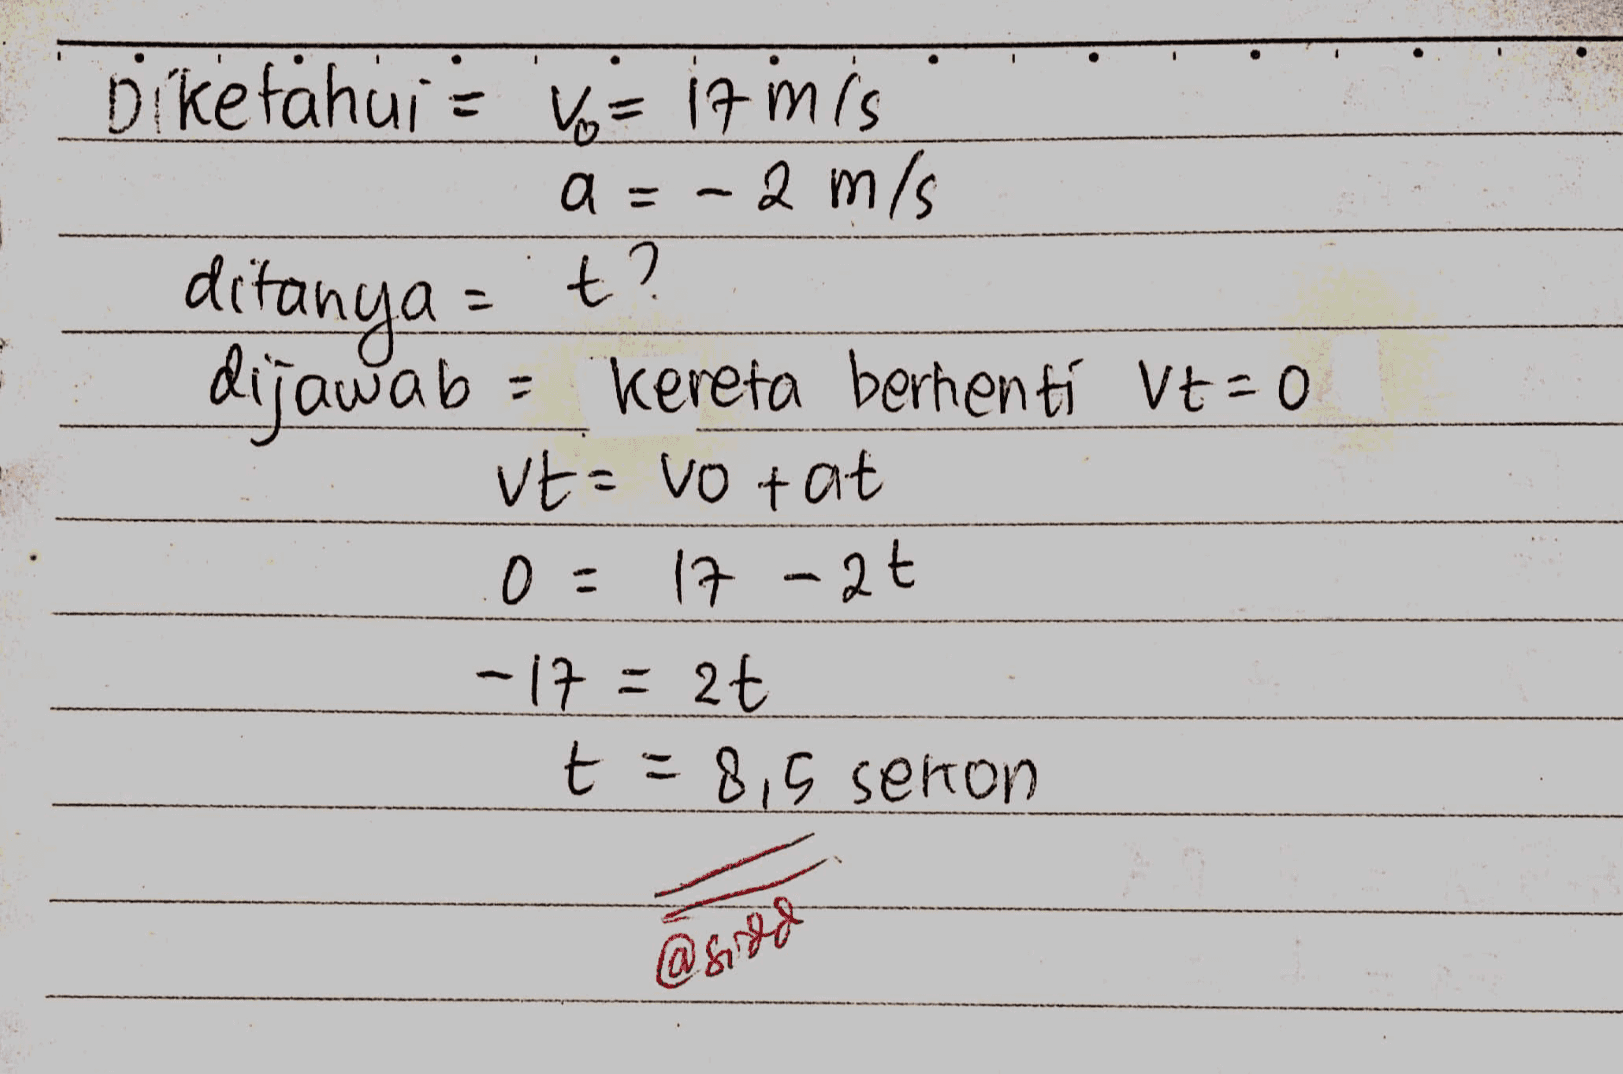 Diketahui = V₀ = 17 m/s
a = - 2 m/s
ditanya = t?
dijawab = kereta berhenti Vt = 0
Vt = Vo + at
0 = 17 - 2t
-17 = 2t
t = 8,5 sekon
@sidd